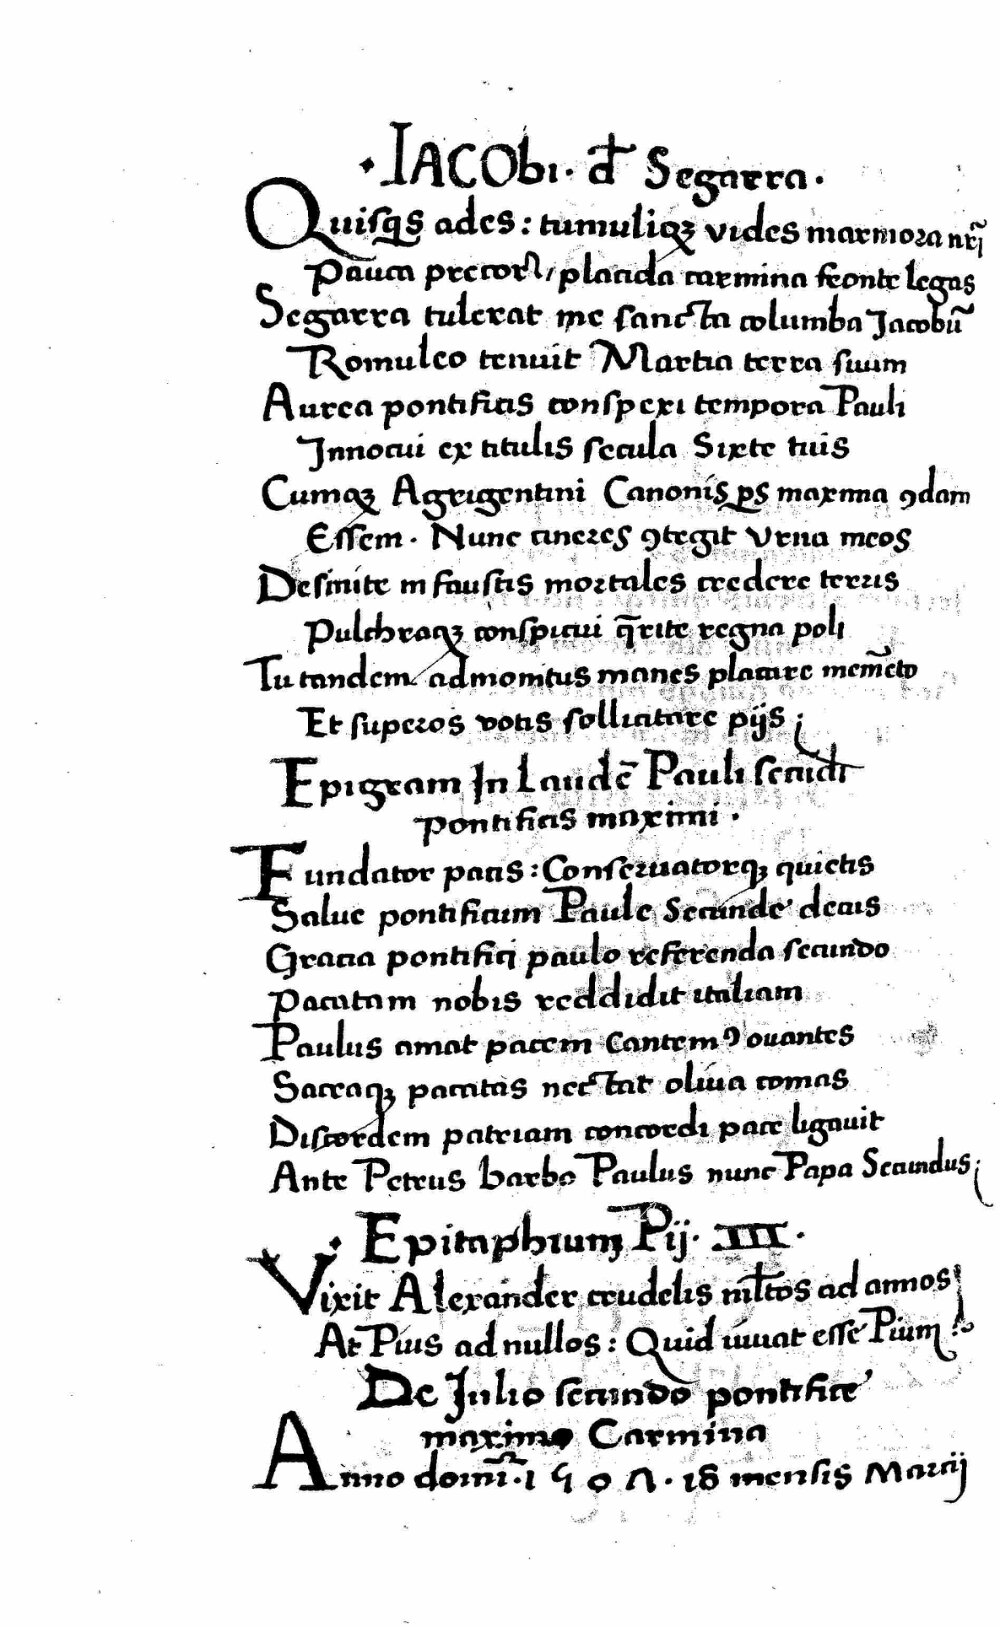 · IACObi · đ Segarra ·
Quisqs ades: tumuliqꝫ vides marmora nr̃i
Pauca precorꝛ / placida carmina fronte legas
Segarra tulerat me sancta columba Jacobũ
Romuleo tenuit Martia terra suum
Aurea pontificis conspexi tempora Pauli
Innocui ex titulis secula Sixte tuis
Cumqꝫ Agrigentini Canonis ꝑs maxima ꝯdam
Essem · Nunc cineres ꝯtegit Vrna meos
Desinite in faustis mortales credere terris
Pulchraqꝫ conspicui q̃rite regna poli
Tu tandem admonitus manes placare mem̃eto
Et superos votis sollicitare pijs ;
Epigram In Laudẽ Pauli secũdi
pontificis maximi ·
Fundator pacis : Conseruatorqꝫ quietis
Salue pontificum Paule Secunde decus
Gracia pontifici paulo referenda secundo
Pacatam nobis reddidit italiam
Paulus amat pacem Cantemꝰ ouantes
Sacraqꝫ pacatas nectat oliua comas
Discordem patriam concordi pace ligauit
Ante Petrus barbo Paulus nunc Papa Secundus ;
· Epitaphium Pij · III ·
Vixit Alexander crudelis ml̃tos ad annos
At Pius ad nullos : Quid iuuat esse Pium ?
De Julio secundo pontifice
maximo Carmina
Anno domĩ · 1507 · 18 mensis Marcij